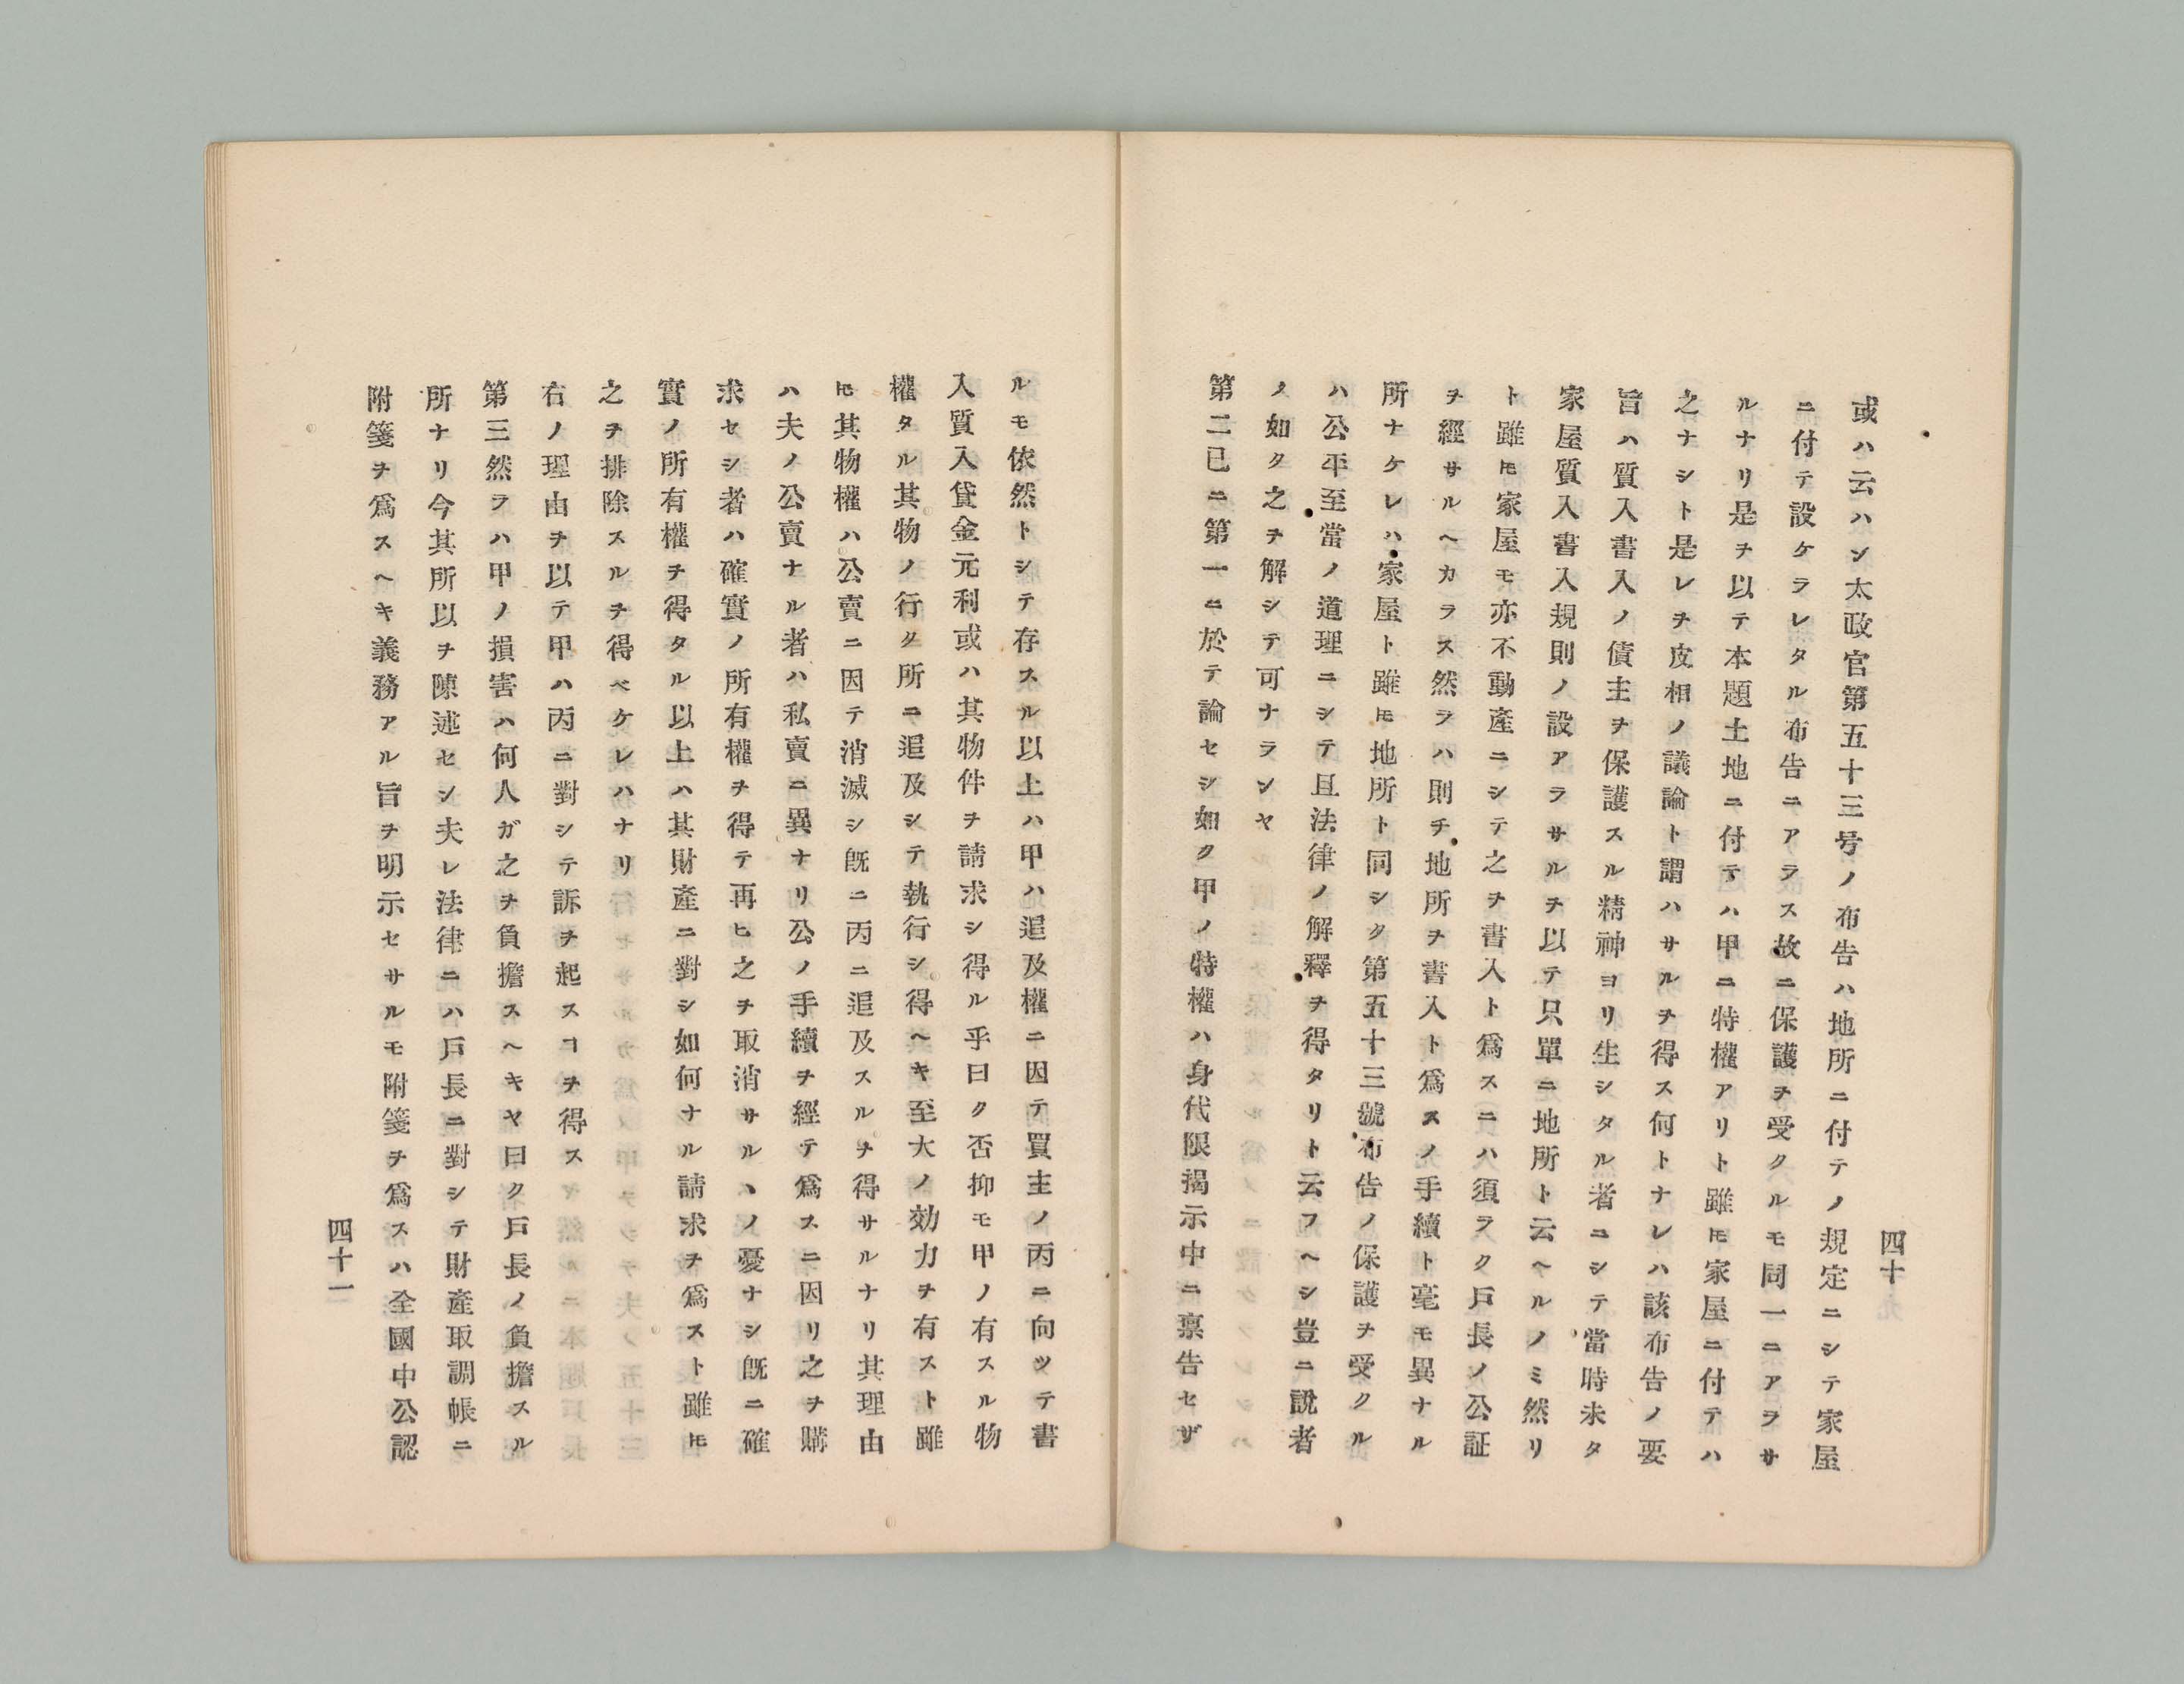 四十
或ハ云ハン太政官第五十三号ノ布告ハ地所ニ付テノ規定ニシテ家屋
ニ付テ設ケラレタル布告ニアラス故ニ保護ヲ受クルモ同一ニアラサ
ルナリ是ヲ以テ本題土地ニ付テハ甲ニ特權アリト雖𪜈家屋ニ付テハ
之ナシト是レヲ皮相ノ議論ト謂ハサルヲ得ス何トナレハ該布告ノ要
旨ハ質入書入ノ債主ヲ保護スル精神ヨリ生シタル者ニシテ當時未タ
家屋質入書入規則ノ設アラサルヲ以テ只單ニ地所ト云ヘルノミ然リ
ト雖𪜈家屋モ亦不動產ニシテ之ヲ書入ト爲スニハ須ラク戶長ノ公証
ヲ經サルヘカラス然ラハ則チ地所ヲ書入ト爲スノ手續ト毫モ異ナル
所ナケレハ家屋ト雖𪜈地所ト同シク第五十三號布告ノ保護ヲ受クル
ハ公平至當ノ道理ニシテ且法律ノ解釋ヲ得タリト云フヘシ豈ニ說者
ノ如ク之ヲ解シテ可ナランヤ
第二已ニ第一ニ於テ論セシ如ク甲ノ特權ハ身代限揭示中ニ稟告セザ
ルモ依然トシテ存スル以上ハ甲ハ追及權ニ因テ買主ノ丙ニ向ッテ書
入質入貸金元利或ハ其物件ヲ請求シ得ル乎曰ク否抑モ甲ノ有スル物
權タル其物ノ行ク所ニ追及シテ執行シ得ヘキ至大ノ効力ヲ有スト雖
𪜈其物權ハ公賣ニ因テ消滅シ既ニ丙ニ追及スルヲ得サルナリ其理由
ハ夫ノ公賣ナル者ハ私賣ニ異ナリ公ノ手續ヲ經テ爲スニ因リ之ヲ購
求セシ者ハ確實ノ所有權ヲ得テ再ヒ之ヲ取消サルヽノ憂ナシ既ニ確
實ノ所有權ヲ得タル以上ハ其財產ニ對シ如何ナル請求ヲ爲スト雖𪜈
之ヲ排除スルヲ得ベケレハナリ
右ノ理由ヲ以テ甲ハ丙ニ對シテ訴ヲ起スヿヲ得ス
第三然ラハ甲ノ損害ハ何人ガ之ヲ負擔スヘキヤ曰ク戶長ノ負擔スル
所ナリ今其所以ヲ陳述セシ夫レ法律ニハ戶長ニ對シテ財產取調帳ニ
附箋ヲ爲スヘキ義務アル旨ヲ明示セサルモ附箋ヲ爲スハ全國中公認
四十一